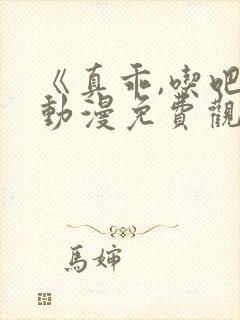 《真乖,喫吧
動漫免費觀
馬婶